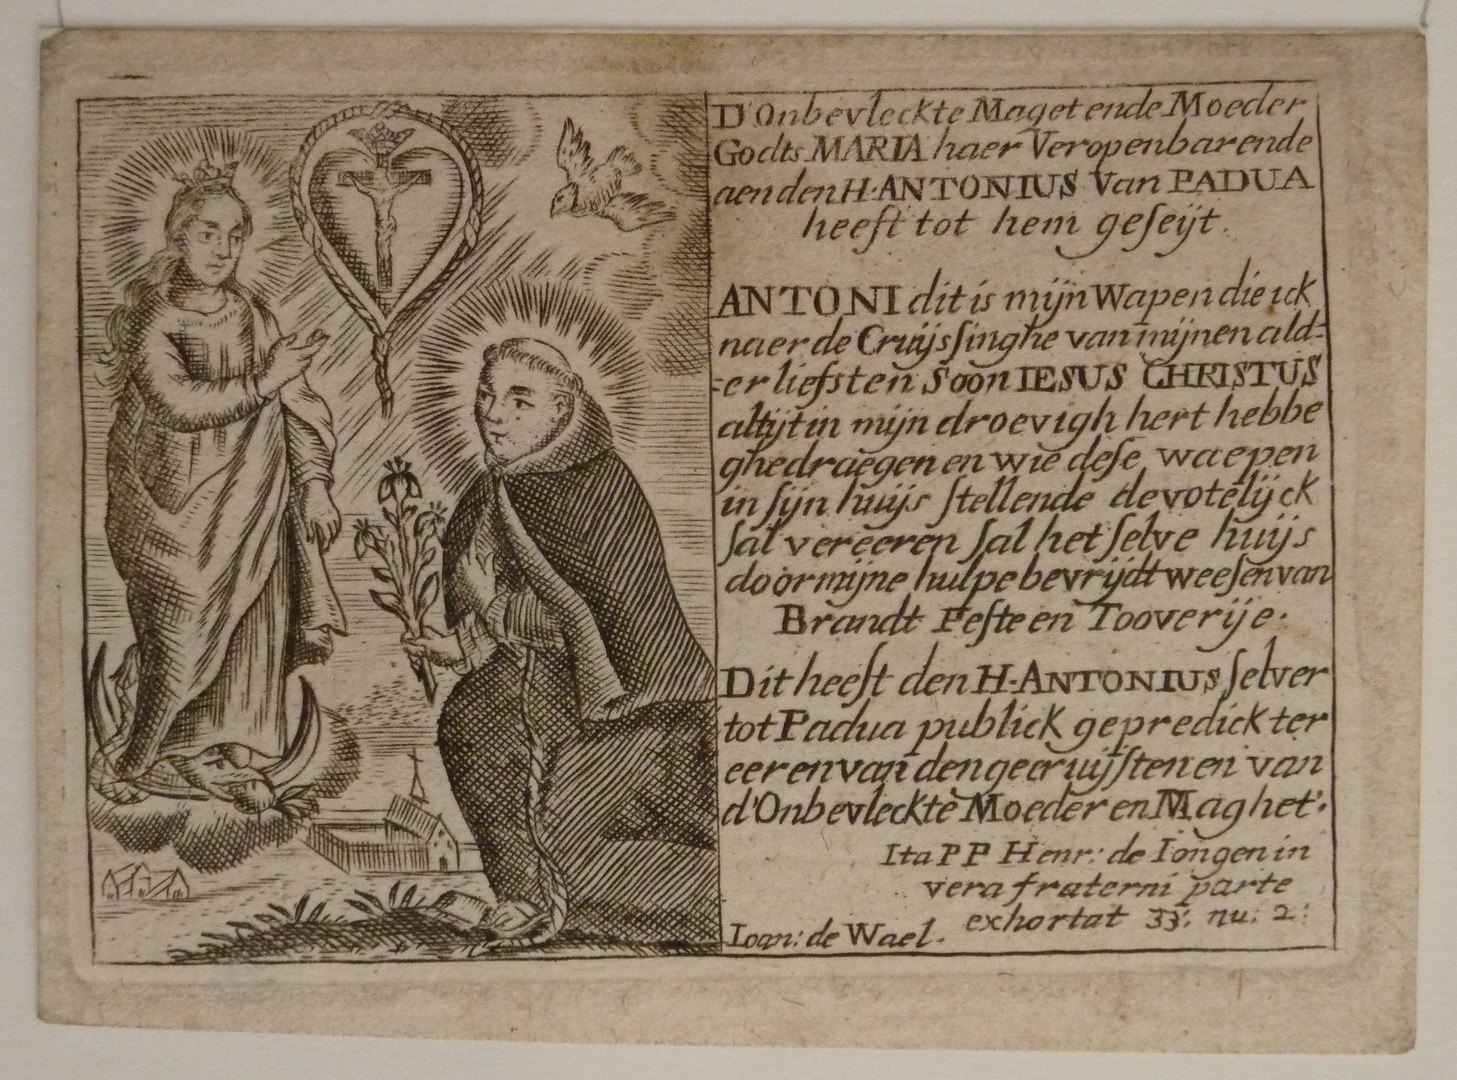 D'Onbevleckte Maget ende Moeder
Godts MARIA haer Veropenbarende
aen den H·ANTONIUS Van PADUA
heeft tot hem geseijt.
ANTONI dit is mijn Wapen die ick
naer de Cruijssinghe van mijnen ald=
=er liefsten Soon IESUS CHRISTUS
altijt in mijn droevigh hert hebbe
ghedraegen en wie dese waepen
in sijn huijs stellende devotelijck
sal vereeren sal het selve huijs
door mijne hulpe bevrijdt weesen van
Brandt Peste en Tooverije.
Dit heeft den H·ANTONIUS selver
tot Padua publick gepredickt ter
eeren van den geeruijsten en van
d'Onbevleckte Moeder en Maghet.
Ita P P Henr: de Iongen in
vera fraterni parte
exhortat 33: nu: 2:
Ioan: de Wael.